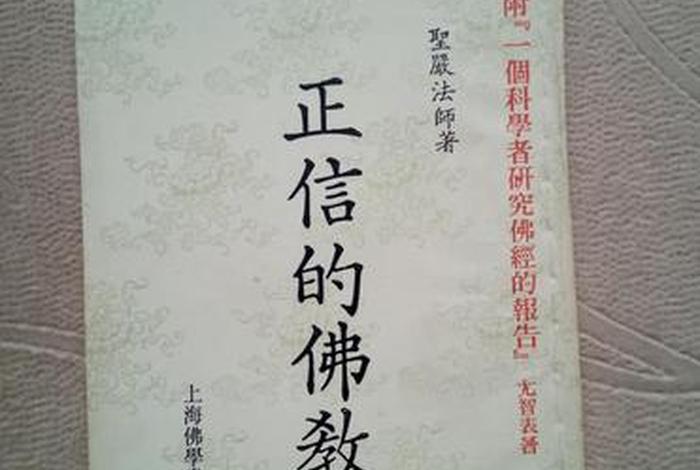 附『一個科學者研究佛經的報告』 尤智表著
聖嚴法師著
正信的佛教
上海佛學